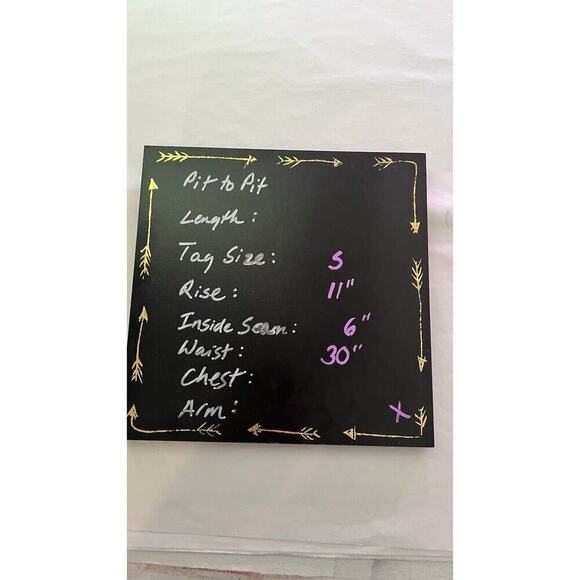 Pit to Pit
Length:
Tag Size: S
Rise: 11"
Inside Seam: 6"
Waist: 30"
Chest:
Arm: X